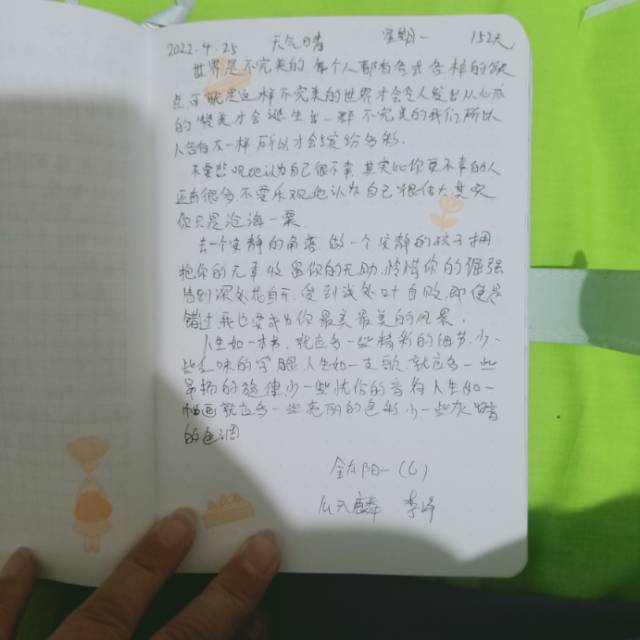 2022.4.25 天气晴 星期一 152天
世界是不完美的 每个人都有各式各样的缺
点 可就是这样不完美的世界才会令人发出从心底
的 才会诞生出一群不完美的我们 所以
人各自不一样 所以才会缤纷多彩.
不要悲观地认为自己很不幸 其实比你更不幸的人
还有很多 不要乐观地认为自己很伟大 其实
你只是沧海一粟
去一个安静的角落 做一个安静的孩子 拥
抱你的无辜 收留你的无助 你的倔强
情到深处花自开 爱到浅处叶自败 即使是
错过我也要成为你最美最美的风景.
人生如一本书, 就应多一些精彩的细节,少一
些乏味的字眼 人生如一支歌,就应多一些
昂扬的旋律少一些忧伤的音符 人生如一
幅画就应多一些亮丽的色彩 少一些灰暗
的色调